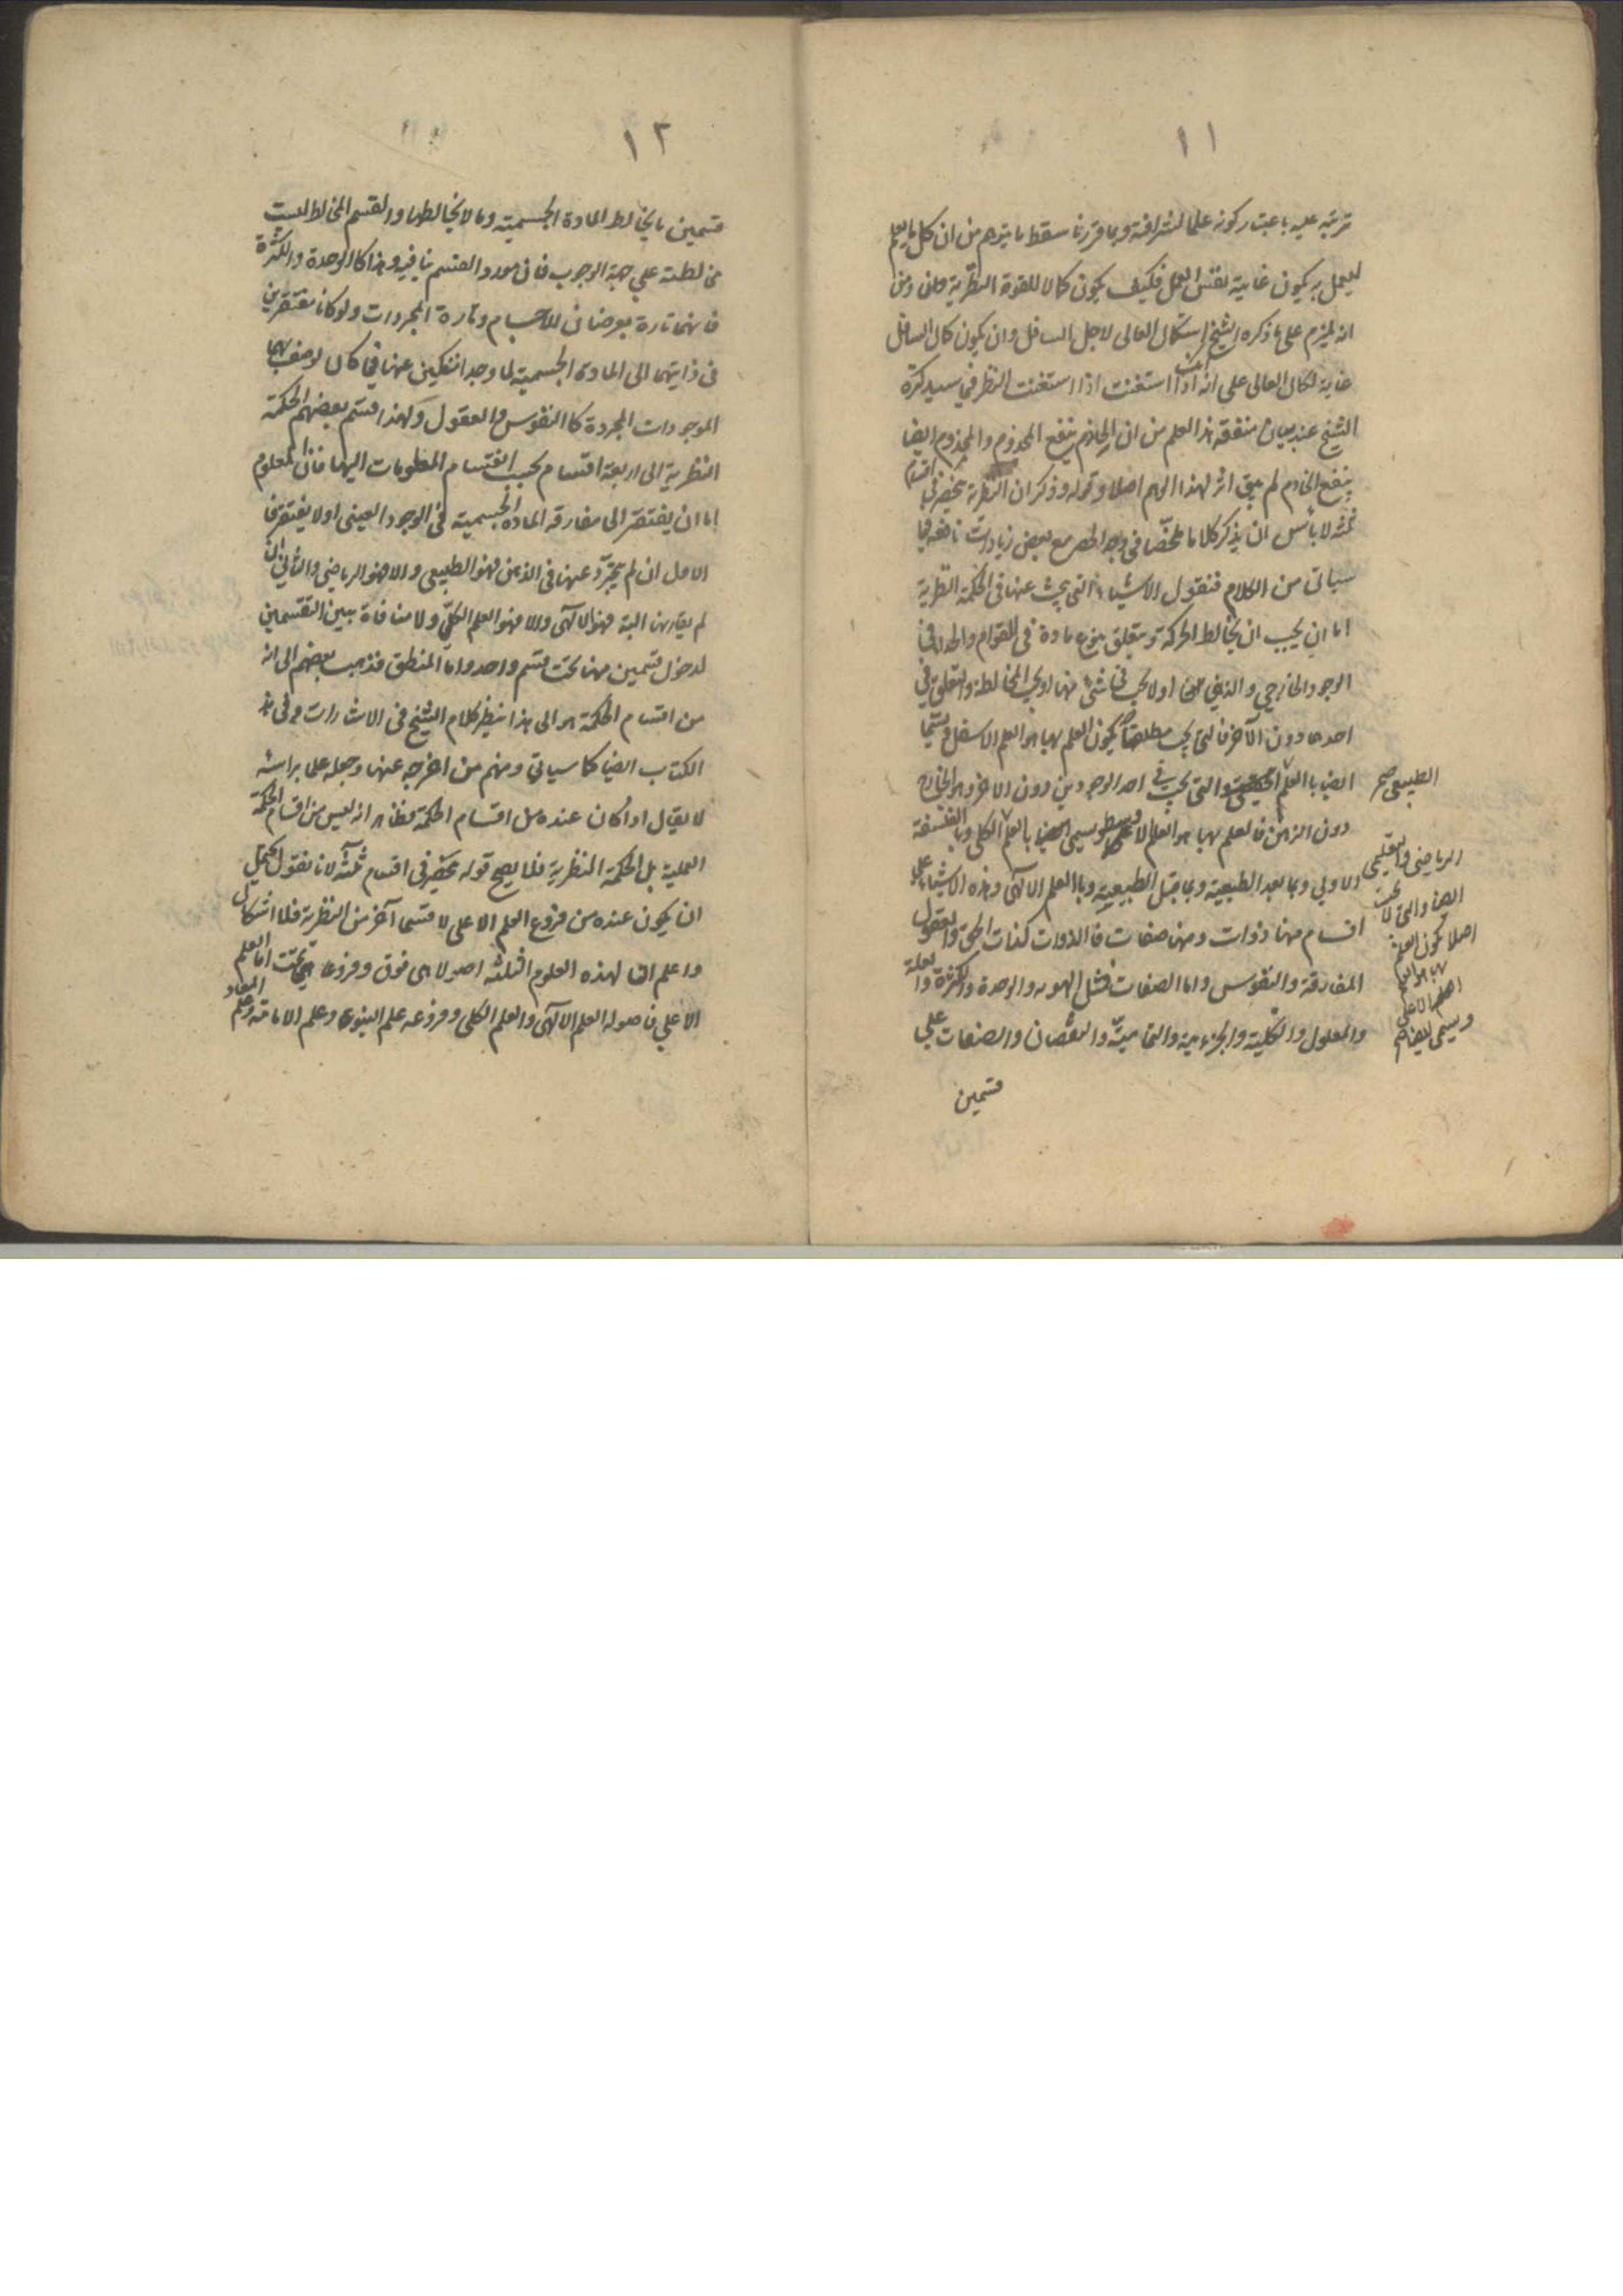 ١١
ترتبه عليه باعتبار كونه علما لشرافته وبما قررنا سقط ما يتوهم من ان كل ما يعلم
ليعمل به يكون غايته نفس العمل فكيف يكون كمالا للقوة النظرية ومن
انه يلزم على ما ذكره الشيخ استكمال العالى لاجل السافل وان يكون كمال السافل
غاية لكمال العالى على انه اذا استغنت النظر فيما سيذكره
الشيخ عند بيان منفعة هذا العلم من ان الخادم ينفع المخدوم والمخدوم ايضا
ينفع الخادم لم يبق اثر لهذا الوهم اصلا وقوله وذكر ان النظرية ينحصر فى اقسام
ثلثة لا بأس ان يذكر كلاما ملخصا فى وجه الحصر مع بعض زيادات نافعة فيما
سياتى من الكلام فنقول الاشياء التى يبحث عنها فى الحكمة النظرية
اما ان يجب ان يخالط الحركة ويتعلق بنوع مادة فى القوام والحد اى فى
الوجود الخارجى والذهنى اولا يجب فى شئ منها او يجب المخالطة والتعلق فى
احدهما دون الآخر فالتى يجب مطلقا يكون العلم بها هو العلم الاسفل ويسمى
ايضا بالعلم والتى يجب فى احد الوجودين دون الاخر وهو الخارج
دون الذهن فالعلم بها هو العلم الاوسط ويسمى ايضا بالعلم الكلى وبالفلسفة
الاولى وبما بعد الطبيعة وبما قبل الطبيعة وبالعلم الالهى وهذه الاشياء على
اقسام منها ذوات ومنها صفات فالذوات كذات الحق والعقول
المفارقة والنفوس واما الصفات فمثل الهوية والوحدة والكثرة والعلة
والمعلول والكلية والجزءية والتمامية والنقصان والصفات على
قسمين
الطبيعى صح
الرياضى والتعليمى
ايضا والتى لا يجب
اصلا يكون العلم
بها هو العلم
الاعلى
ويسمى ايضا
١٢
قسمين ما يخالط المادة الجسمية وما لا يخالطها والقسم المخالط ليست
مخالطته على جهة الوجوب فان مورد القسم ينافيه وهذا كالوحدة والكثرة
فانهما تارة يعرضان للاجسام وتارة المجردات ولو كانا مفتقرين
فى ذاتيهما الى المادة الجسمية لما وجدا منفكين عنها فما كان لوصف بهما
الموجودات المجردة كالنفوس والعقول ولهذا قسم بعضهم الحكمة
النظرية الى اربعة اقسام بحسب انقسام المعلومات اليها فان المعلوم
اما ان يفتقر الى مقارنة المادة الجسمية فى الوجود العينى اولا يفتقر فا
الاول ان لم يتجرد عنها فى الذهن فهو الطبيعى والا فهو الرياضى والثانى ان
لم يقارنها البتة فهو الالهى والا فهو العلم الكلى ولا منافاة بين التقسمين
لدخول قسمين منها تحت قسم واحد واما المنطق فذهب بعضهم الى انه
من اقسام الحكمة هو الى هذا ينظر كلام الشيخ فى الاشارات وفى هذا
الكتاب ايضا كما سياتى ومنهم من اخرجه عنها وجعله علما براسه
لا يقال اذا كان عنده من اقسام الحكمة فظاهر انه ليس من اقسام الحكمة
العملية بل الحكمة النظرية فلما يصح قوله ينحصر فى اقسام ثلثة لانا نقول يحتمل
ان يكون عنده من فروع العلم الاعلى لا قسما آخر من النظرية فلا اشكال
واعلم ان لهذه العلوم الثلثة اصولا هى فوق وفروعا هى تحت اما العلم
الاعلى فاصوله العلم الالهى والعلم الكلى وفروعه علم النبوة وعلم الامامة وعلم المعاد